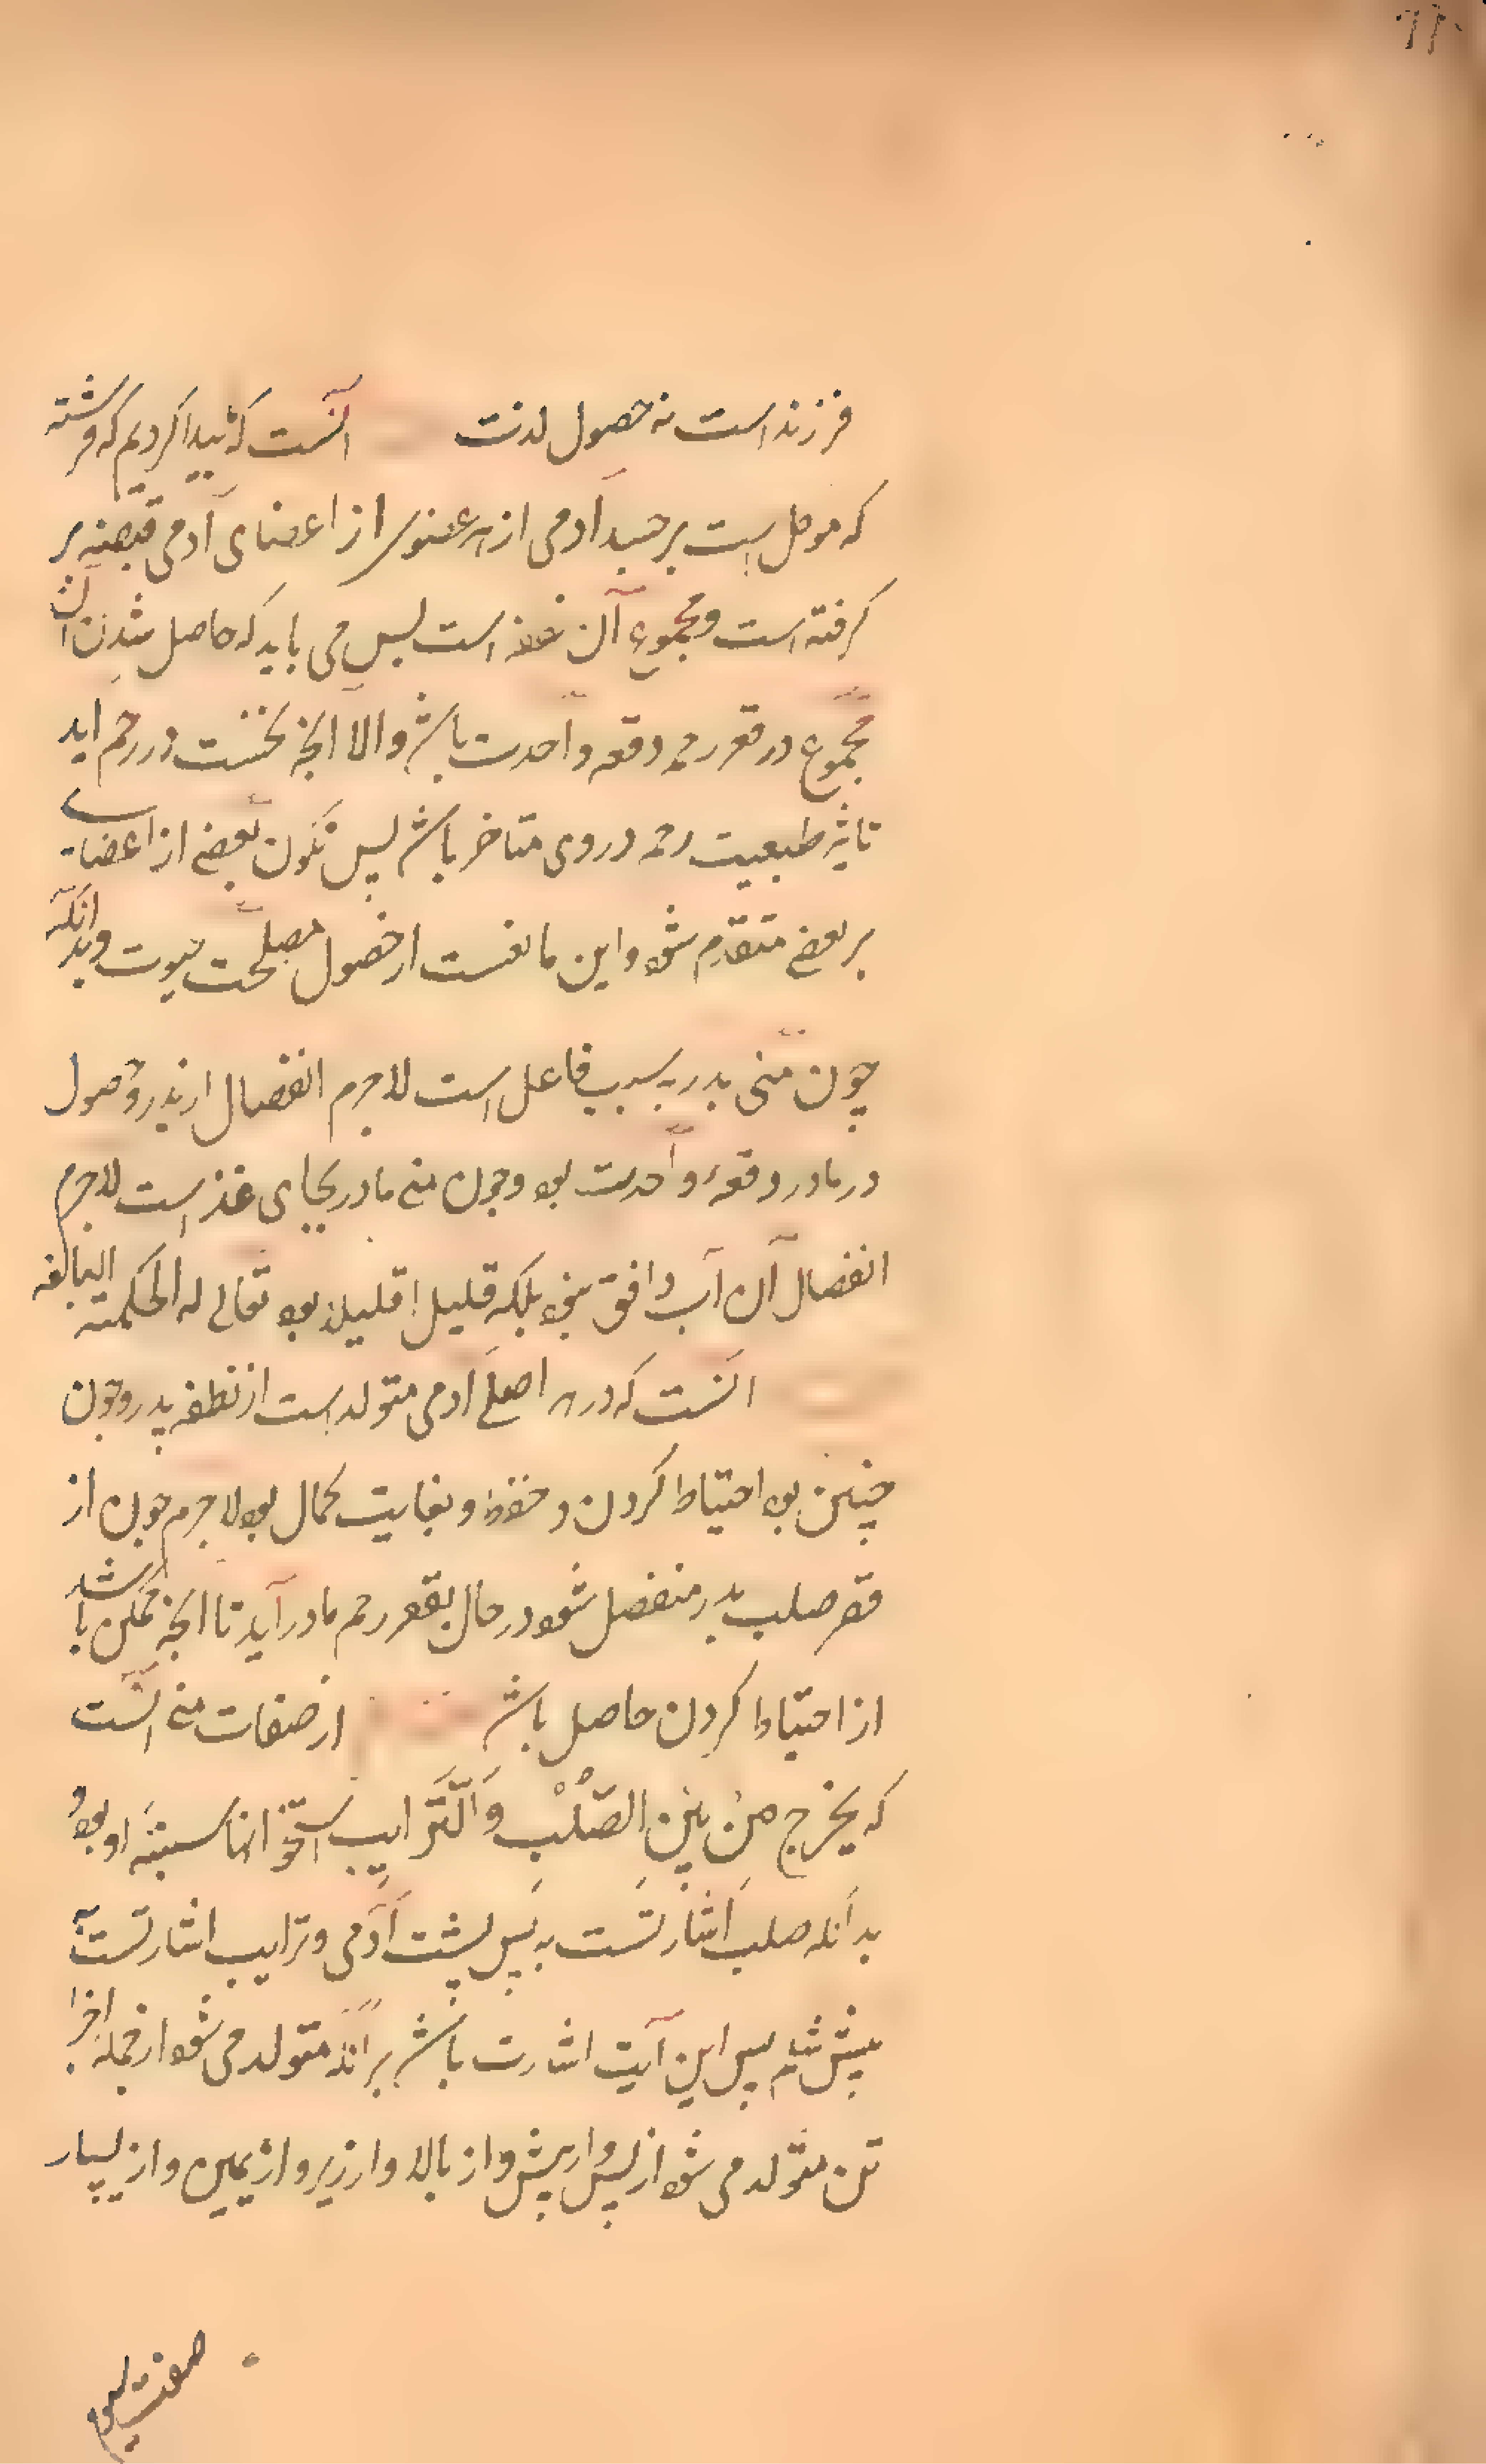 فرزند است نه حصول لذت انست که پیدا کردیم که فرشته
که موکل است بر جسد آدمی از هر عضوی از اعضای آدمی قبضه بر
کرفته است و مجموع آن غذا است پس می باید که حاصل شدن آن
مجموع در قعر رحم دفعه واحدت باشد والا انچه نخست در رحم اید
تاثیر طبعیت رحم در وی متاخر باشد پس تکون بعضی از اعضاے
بر بعضے متقدم شود و این مانعست از حصول مصلحت حیوت وبدانکه
چون منی پدر بسبب فاعل است لاجرم انفصال از پدر وحصول
در مادر دفعهٔ واحدت بود وچون منی مادر بجای غذ است لاجرم
انفصال آن آب دافق نبود بلکه قلیلا قلیلا بود تعالی له الحکمته البالغه
انست که در اصل آدمی متولد است از نطفه پدر وچون
چنین بود احتیاط کردن و حفظ وبغایت کمال بود لاجرم چون از
قعر صلب پدر منفصل شود در حال بقعر رحم مادر آید تا انچه ممکن باشد
از احتیاط کردن حاصل باشد از صفات منی انست
که یخرج مِنْ بَیْنِ الصُّلْبِ وَالتَّرَایِبِ استخوانها سینهٔ او بود و
بدانکه صلب اشارتست به پس پشت آدمی و ترایب اشارتست به
پیش شکم پس این آیت اشارت باشد بر انکه متولد می شود از جمله اجزا
تن متولد می شود از پس و از پیش و از بالا و از زیر و از یمین و از یسار
صفت سیوم